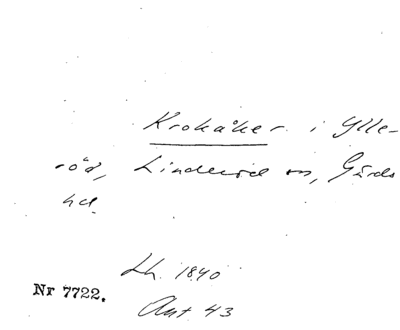 Krokåker i Ylle-
röd, Linderöd sn, Gärds
hd.
Lh. 1840
Nr 7722.
Akt 43